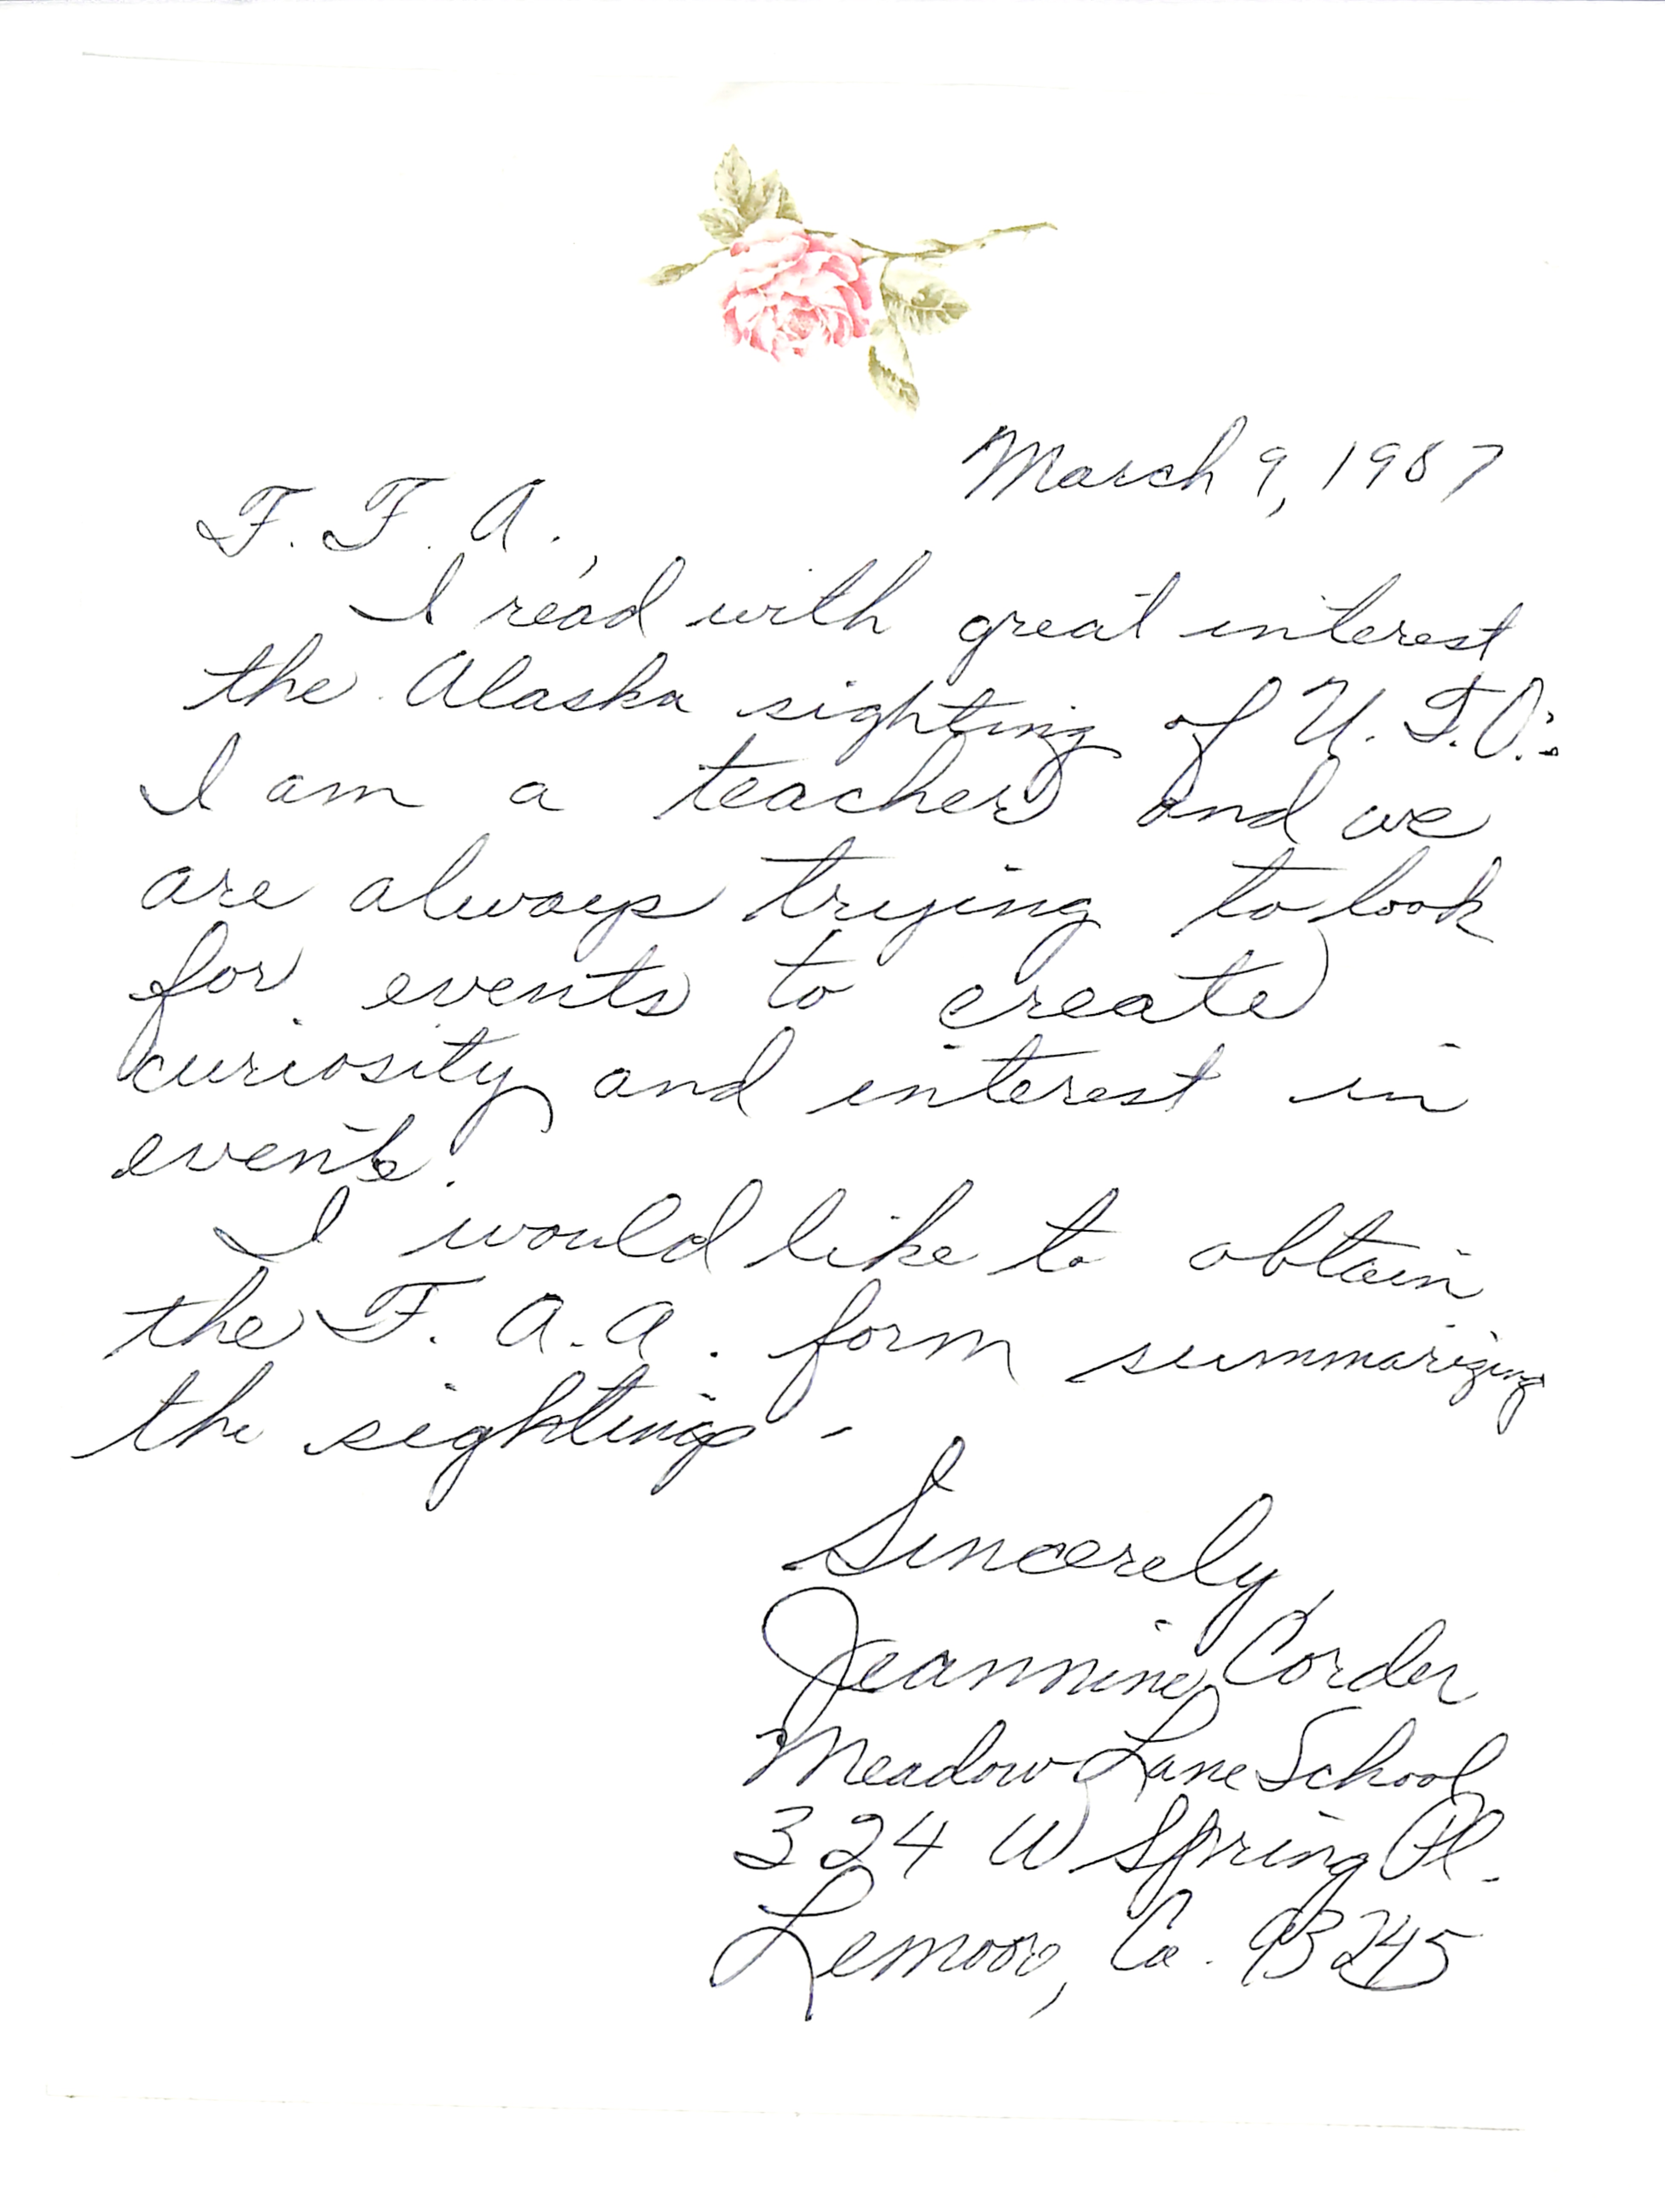 March 9, 1987
F. F. A.,
I read with great interest
the Alaska sighting of U.F.O.'s.
I am a teacher and we
are always trying to look
for events to create
curiosity and interest in
events.
I would like to obtain
the F. A. A. form summarizing
the sightings.
Sincerely,
Jeannine Corder
Meadow Lane School
324 W Spring Pl.
Lemoore, Ca. 93245